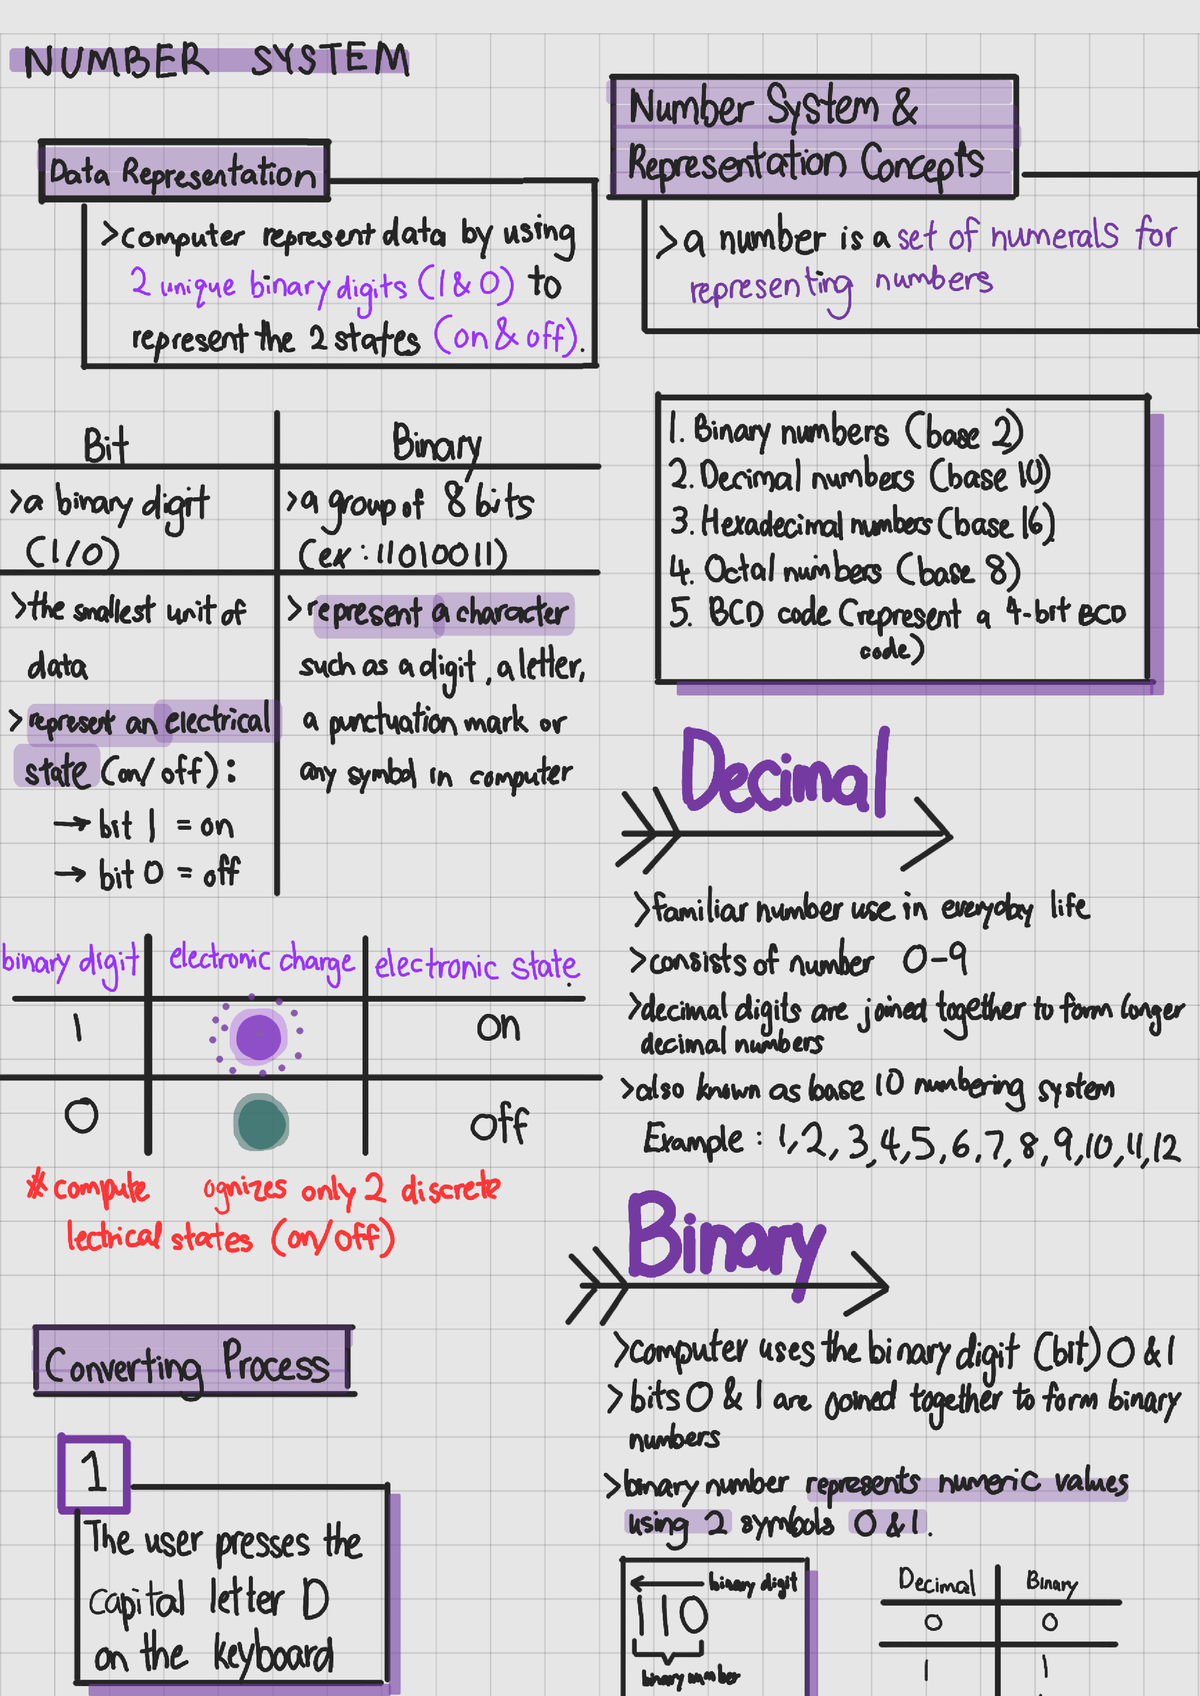 NUMBER SYSTEM
Data Representation
>computer represent data by using
2 unique binary digits (1 & 0) to
represent the 2 states (on & off).
Bit
>a binary digit
(1/0)
>the smallest unit of
data
>represent an electrical
state (on/off):
→ bit 1 = on
→ bit 0 = off
Binary
>a group of 8 bits
(ex: 11010011)
>represent a character
such as a digit, a letter,
a punctuation mark or
any symbol in computer
binary digit electronic charge electronic state.
1 on
0 off
* compute ognizes only 2 discrete
lectrical states (on/off)
Converting Process
1
The user presses the
capital letter D
on the keyboard
Number System &
Representation Concepts
>a number is a set of numerals for
representing numbers
1. Binary numbers (base 2)
2. Decimal numbers (base 10)
3. Hexadecimal numbers (base 16)
4. Octal numbers (base 8)
5. BCD code (represent a 4-bit BCD
code)
Decimal
>familiar number use in everyday life
>consists of number 0-9
>decimal digits are joined together to form longer
decimal numbers
>also known as base 10 numbering system
Example : 1,2,3,4,5,6,7,8,9,10,11,12
Binary
>computer uses the binary digit (bit) 0 & 1
>bits 0 & 1 are joined together to form binary
numbers
>binary number represents numeric values
using 2 symbols 0 & 1.
← binary digit
110
binary number
Decimal Binary
0 0
1 1